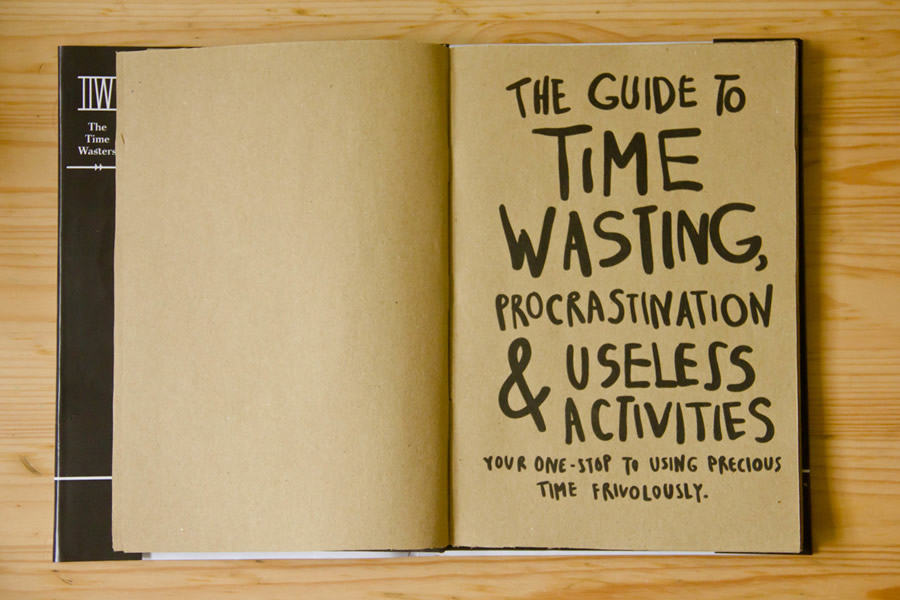 TTW
The
Time
Wasters
THE GUIDE TO
TIME
WASTING,
PROCRASTINATION
& USELESS
ACTIVITIES
YOUR ONE-STOP TO USING PRECIOUS
TIME FRIVOLOUSLY.